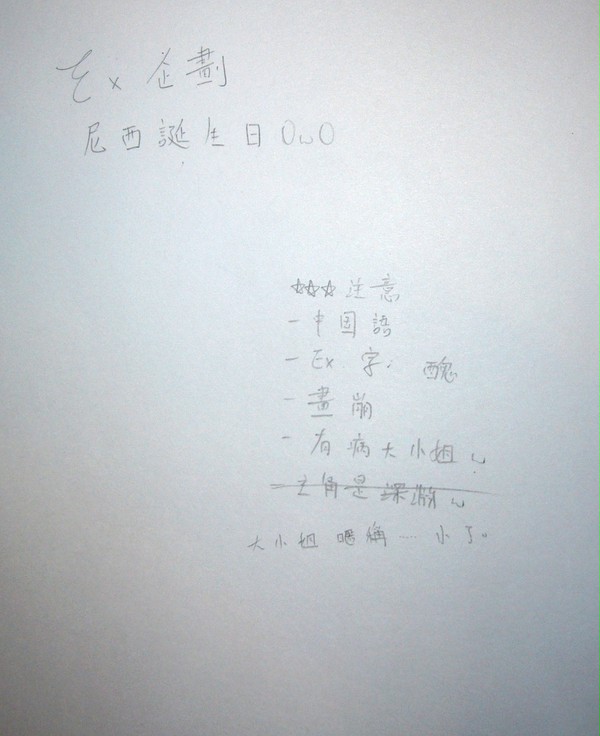 Ex 企劃
尼西誕生日 OωO
☆☆☆ 注意
- 中国語
- Ex 字. 醜
- 畫崩
- 有病大小姐ω
主角是深淵ω
大小姐 暱稱 …… 小了。